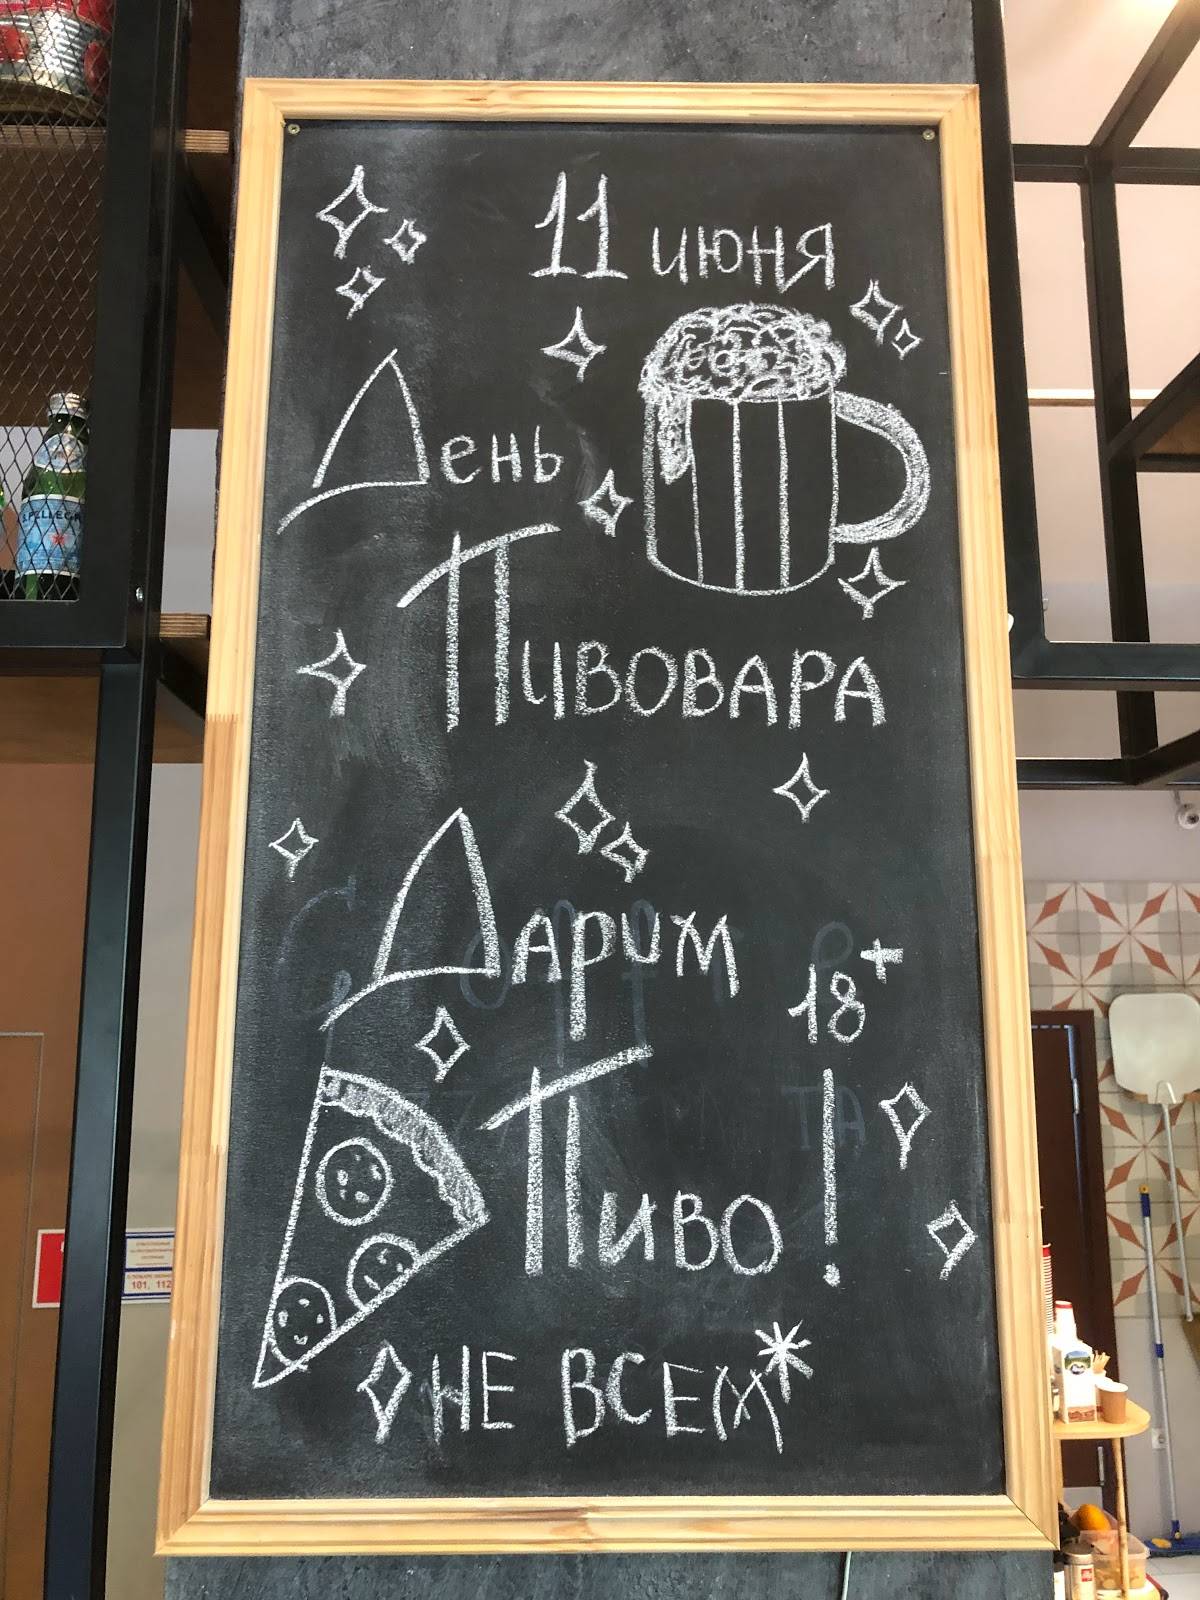 11 июня
День
Пивовара
Дарим
18+
Пиво!
не всем*
101, 112